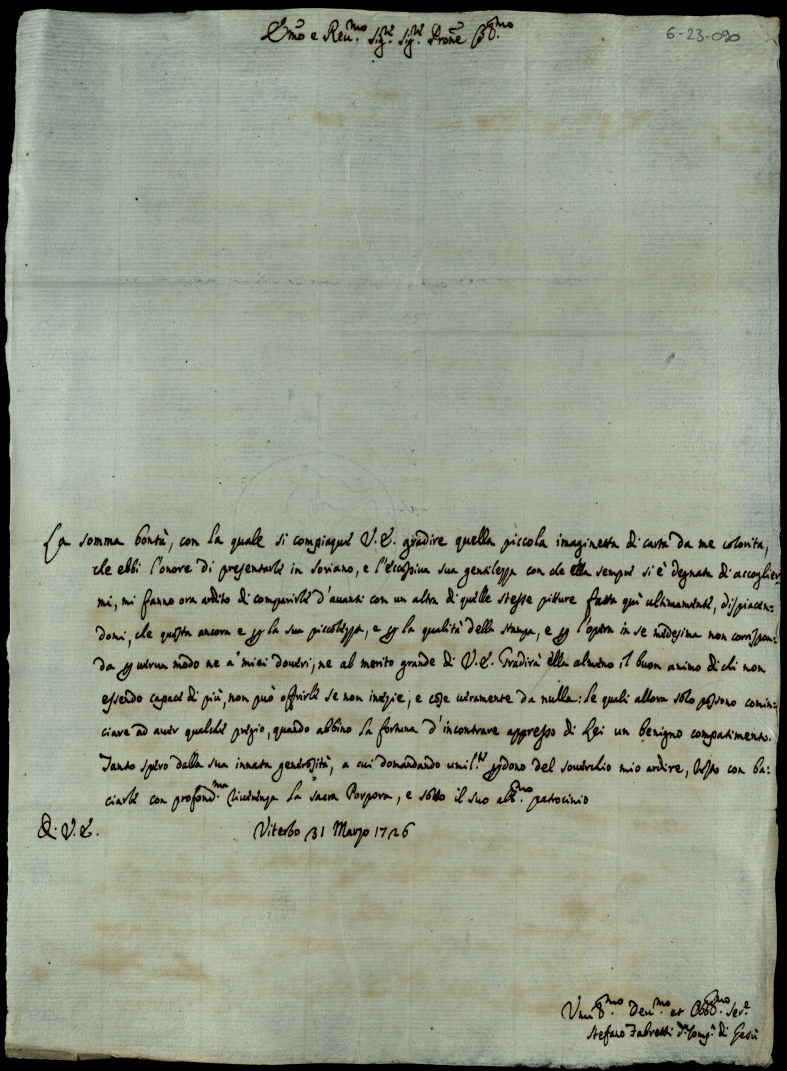 Em̃o e Reu.mo Sig.re Sig.re Prone
6-23-090
La somma bontà, con la quale si compiaque V.E. gradire quella piccola imaginetta di carta da me colorita,
che ebbi l'onore di presentarle in Soriano, e l'eccessiua sua gentilezza con che ella sempre si è degnata di accoglier-
mi, mi fanno ora ardito di comparirle d'auanti con un altra di quelle stesse pitture fatta quì ultimamente, dispiacen-
domi, che questa ancora e p la sua piccolezza, e p la qualità della stampa, e p l'opera in se medesima non corrispon-
da p uerun modo ne a' miei doueri, ne al merito grande di V.E. Gradirà ella almeno il buon animo di chi non
essendo capace di più, non può offrirle se non inezie, e cose ueramente da nulla: le quali allora solo possono comin-
ciare ad auer qualche pregio, quando abbino la fortuna d'incontrare appresso di Lei un benigno compatimento.
Tanto spero dalla sua innata generosità, a cui domandando umil.te pdono del souerchio mio ardire, resto con ba-
ciarle con profond.ma riuerenza la sacra Porpora, e sotto il suo alt.mo patrocinio
Di V.E.
Viterbo 31 Marzo 1726
Um.mo Deu.mo et Obb.mo Ser.e
Stefano Fabretti d.a Comp.a di Gesù